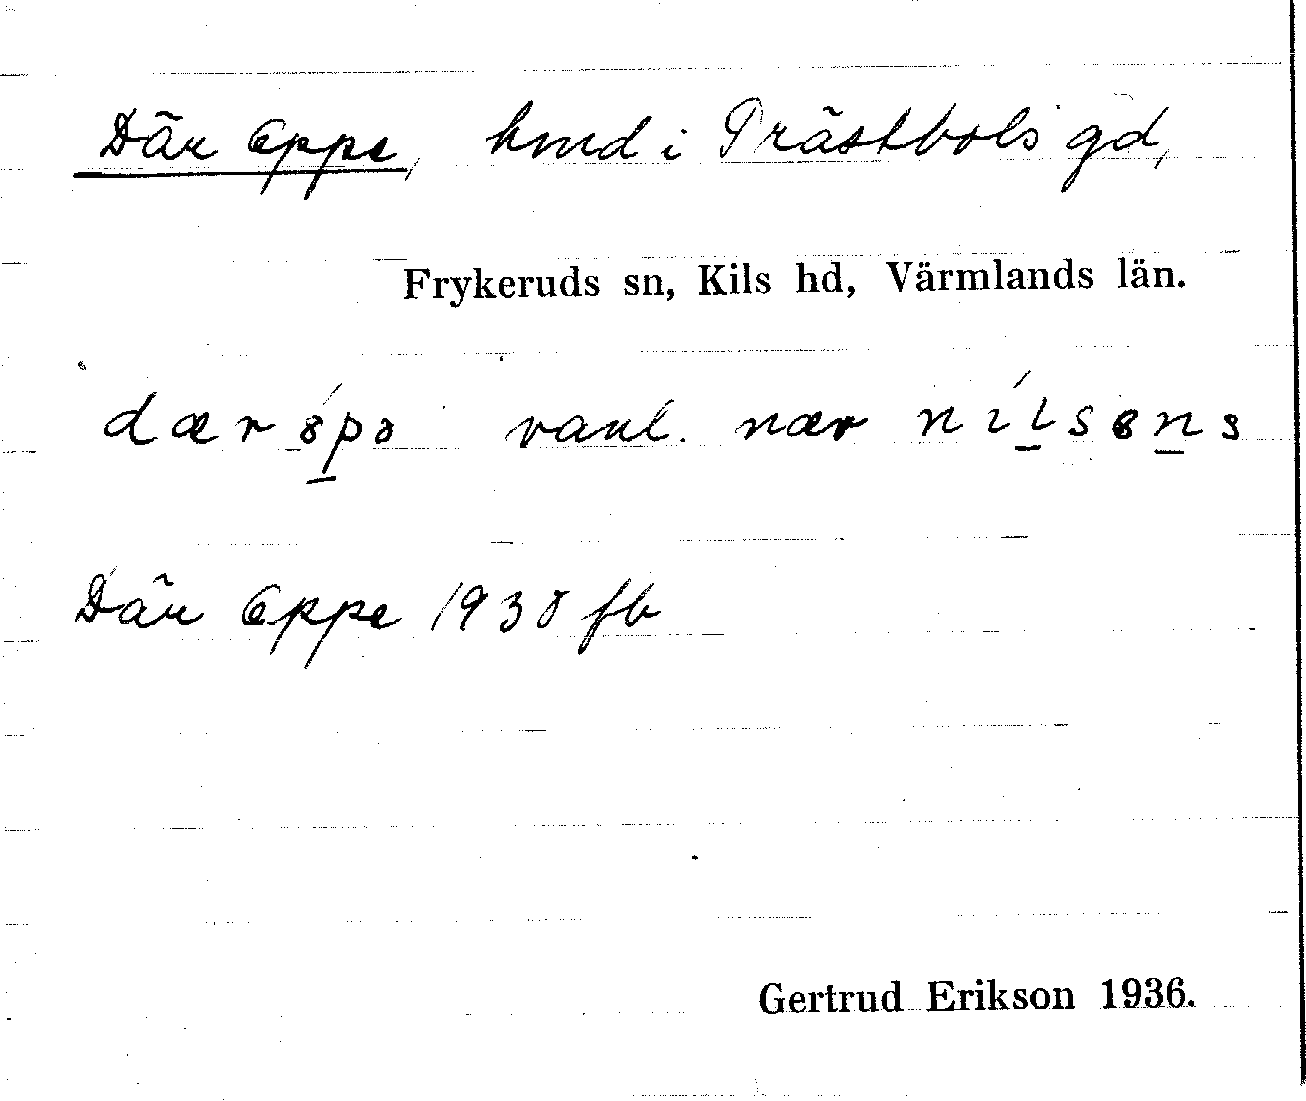 Där Oppe, hmd i Prästbols gd,
Frykeruds sn, Kils hd, Värmlands län.
vanl. nær
Där Oppe 1930 fb
Gertrud Erikson 1936.